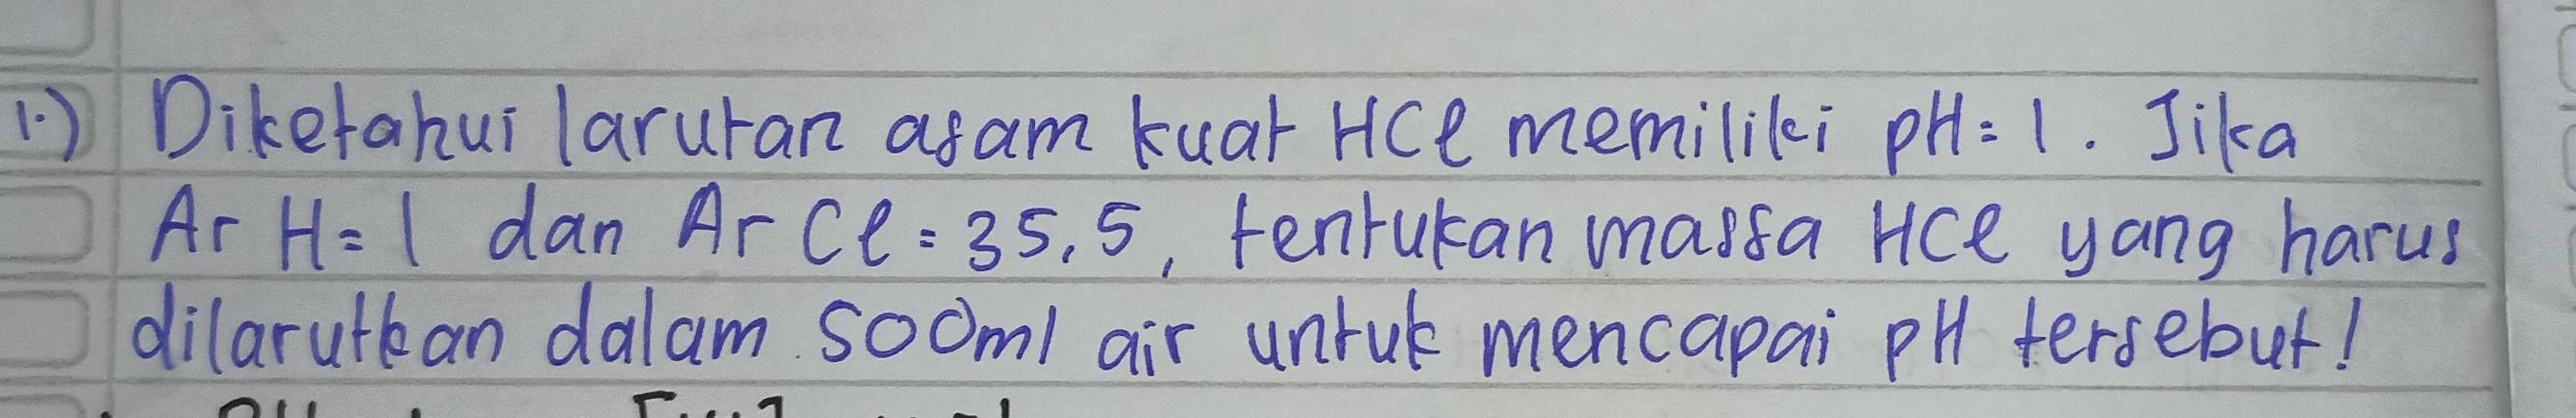 1.) Diketahui larutan asam kuat HCl memiliki pH = 1. Jika
Ar H = 1 dan Ar Cl = 35,5, tentukan massa HCl yang harus
dilarutkan dalam 500ml air untuk mencapai pH tersebut!